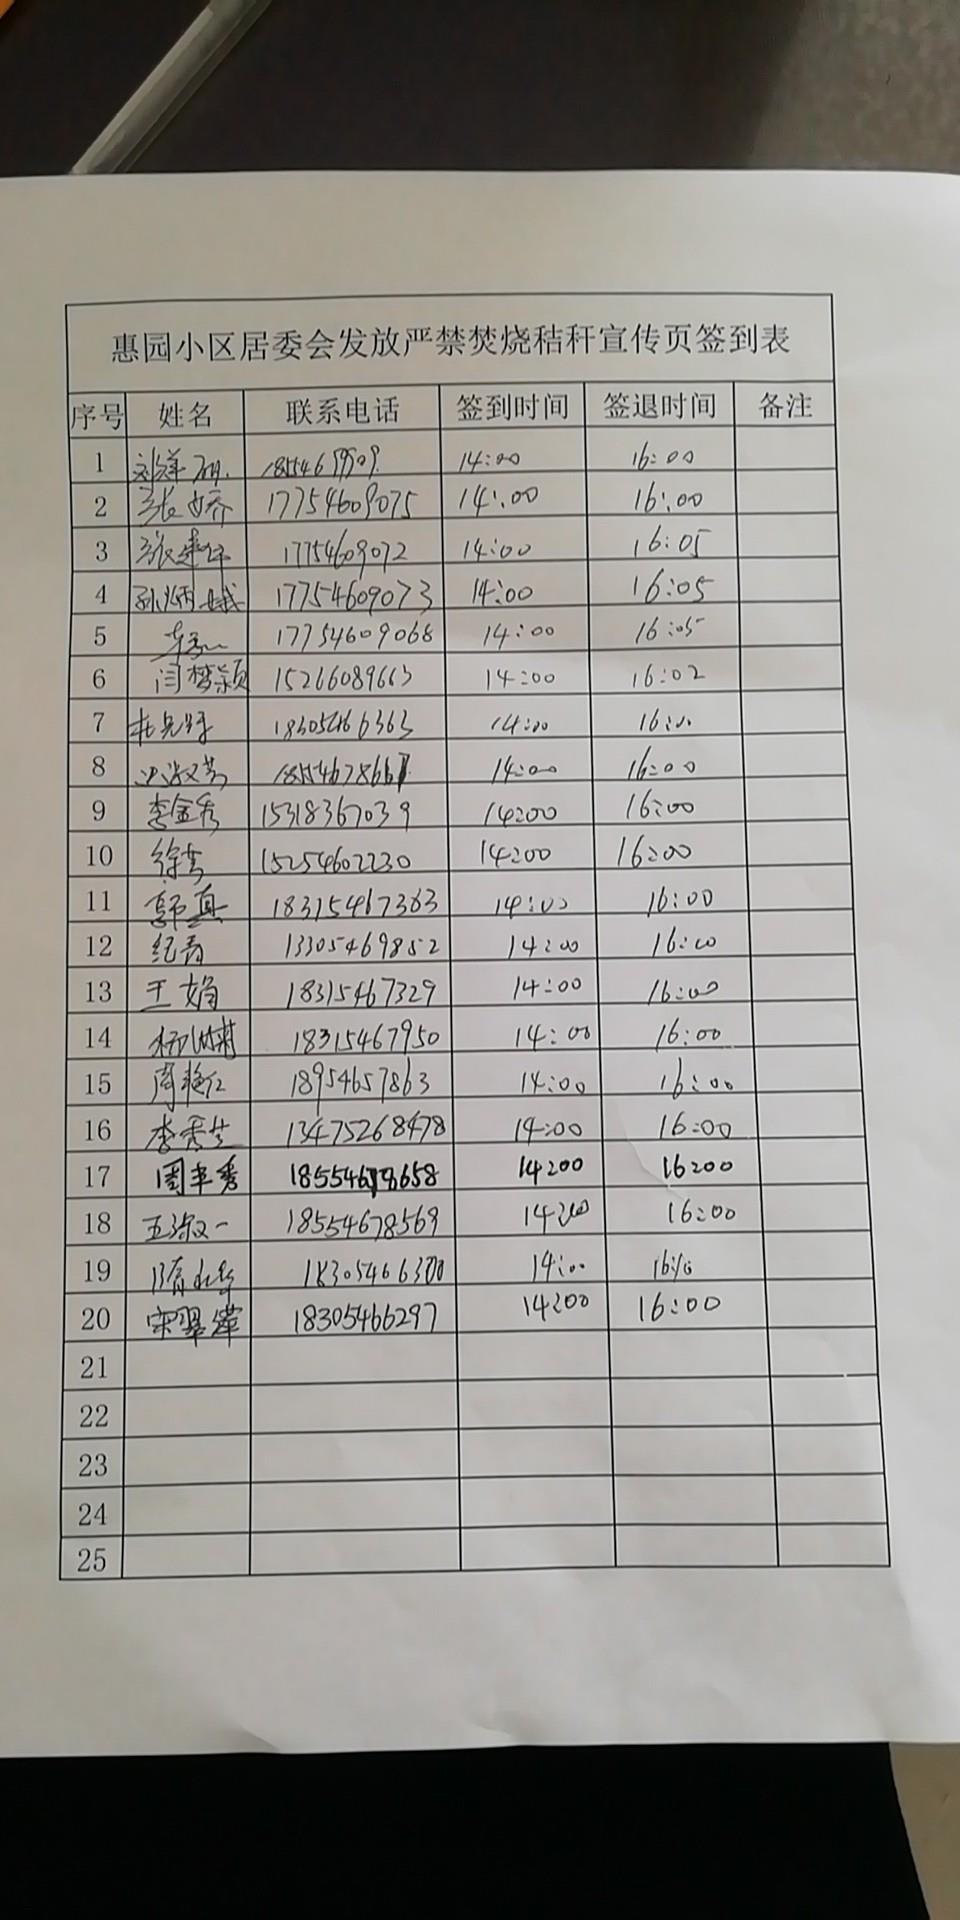 惠园小区居委会发放严禁焚烧秸秆宣传页签到表
序号 姓名 联系电话 签到时间 签退时间 备注
1 14:00 16:00
2 张娇 17754609075 14:00 16:00
3 17754609072 14:00 16:05
4 孙炳娥 17754609073 14:00 16:05
5 17754609068 14:00 16:05
6 闫梦颖 15266089663 14:00 16:02
7 18305466363 14:00 16:00
8 14:00 16:00
9 李金秀 15318367039 14:00 16:00
10 徐秀 15254602230 14:00 16:00
11 郭真 18315467363 14:00 16:00
12 纪青 13305469852 14:00 16:00
13 王娟 18315467329 14:00 16:00
14 18315467950 14:00 16:00
15 周艳红 18954657863 14:00 16:00
16 李秀兰 13475268478 14:00 16:00
17 周丰秀 14:00 16:00
18 王淑一 18554678569 14:00 16:00
19 18305466300 14:00 16:10
20 宋翠萍 18305466297 14:00 16:00
21
22
23
24
25